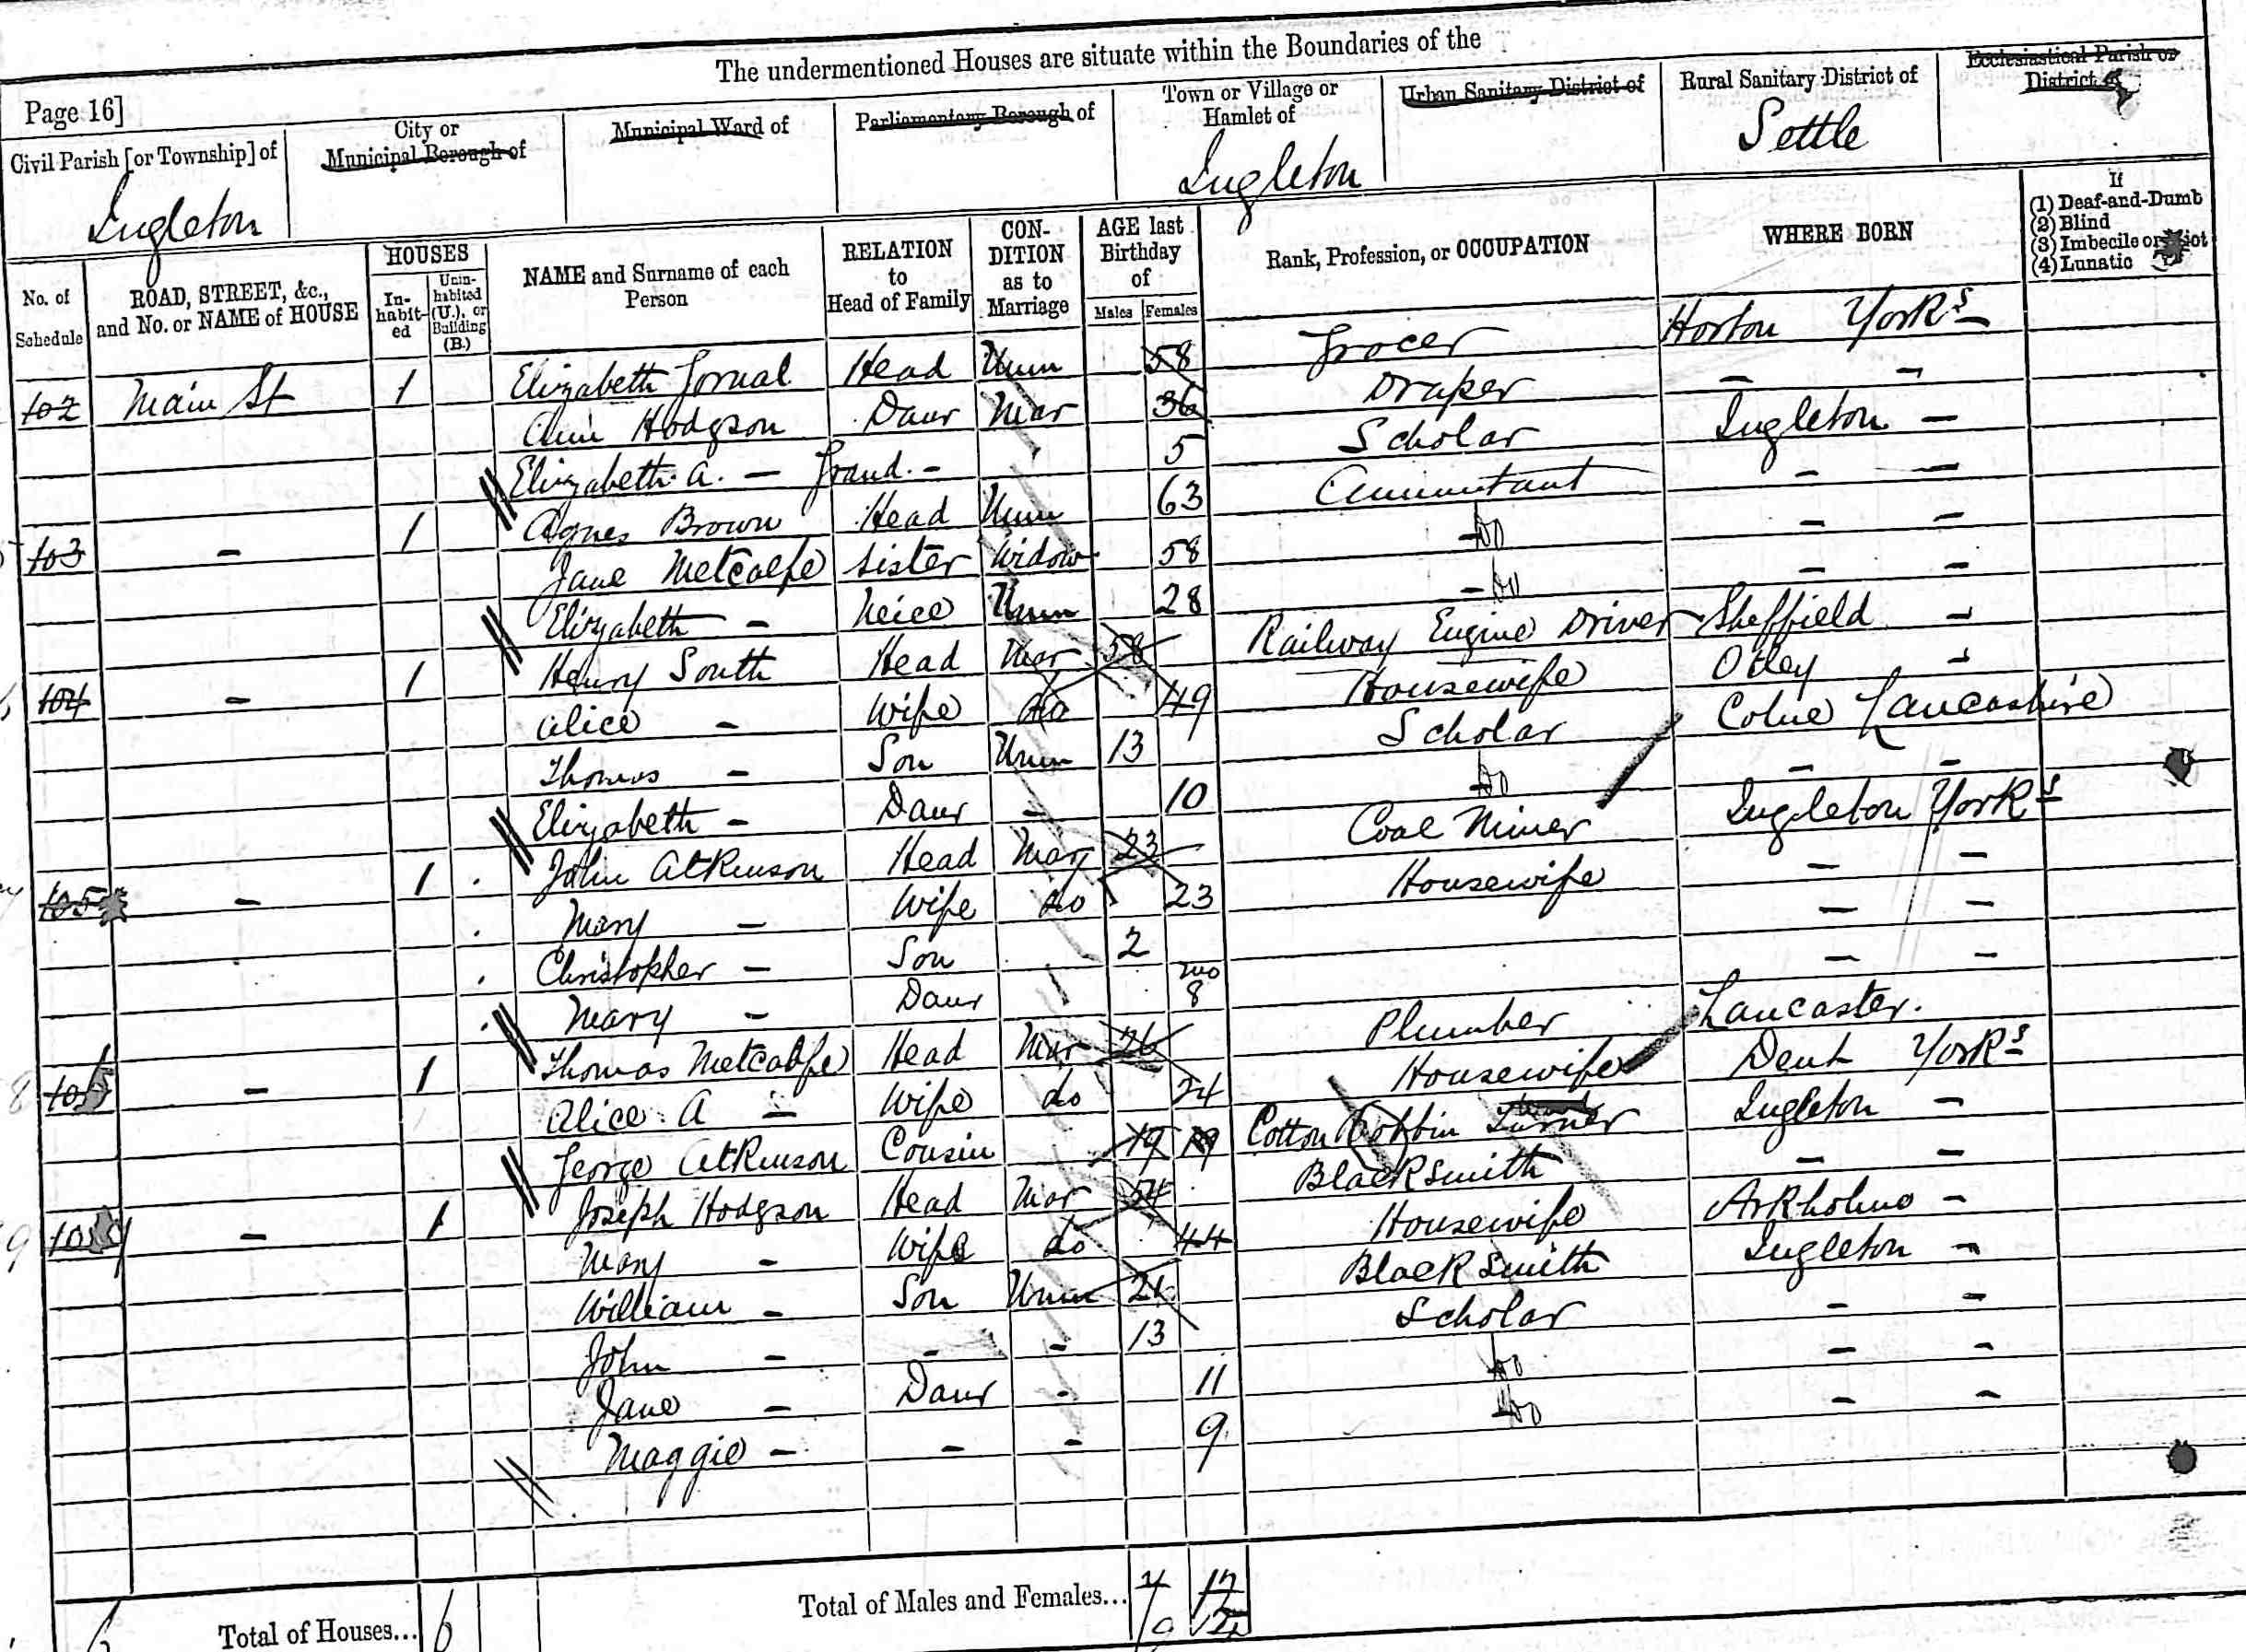 The undermentioned Houses are situate within the Boundaries of the
Page 16]
Civil Parish [or Township] of
Ingleton
City or
Municipal Borough of
Municipal Ward of
Parliamentary Borough of
Town or Village or
Hamlet of
Ingleton
Urban Sanitary District of
Rural Sanitary District of
Settle
Ecclesiastical Parish or
District of
No. of
Schedule
ROAD, STREET, &c.,
and No. or NAME of HOUSE
HOUSES
In-
habit-
ed
Unin-
habited
(U.), or
Building
(B.)
NAME and Surname of each
Person
RELATION
to
Head of Family
CON-
DITION
as to
Marriage
AGE last
Birthday
of
Males Females
Rank, Profession, or OCCUPATION
WHERE BORN
If
(1) Deaf-and-Dumb
(2) Blind
(3) Imbecile or Idiot
(4) Lunatic
102 Main St 1 Elizabeth Head Unm 58 Grocer Horton Yorks
Ann Hodgson Daur Mar 36 Draper — —
Elizabeth A. — Grand. - 5 Scholar Ingleton —
103 — 1 Agnes Brown Head Unm 63 Annuitant — —
Jane Metcalfe Sister Widow 58 Do — —
Elizabeth — Neice Unm 28 Do — —
104 — 1 Henry South Head Mar 58 Railway Engine Driver Sheffield —
Alice — Wife do 49 Housewife Otley —
Thomas — Son Unm 13 Scholar Colne Lancashire
Elizabeth — Daur - 10 Do — —
105 — 1 John Atkinson Head Mar 23 Coal Miner Ingleton Yorks
Mary — Wife do 23 Housewife — —
Christopher — Son 2 — —
Mary — Daur 8 mo — —
— 1 Thomas Metcalfe Head Mar 26 Plumber Lancaster.
Alice A — Wife do 24 Housewife Dent Yorks
George Atkinson Cousin 19 19 Cotton Bobbin Turner Ingleton —
— 1 Joseph Hodgson Head Mar 54 Blacksmith — —
Mary — Wife do 44 Housewife Arkholme —
William — Son Unm 21 Blacksmith Ingleton —
John — - - 13 Scholar — —
Jane — Daur - 11 Do — —
Maggie — — - 9 Do — —
Total of Houses... 6
Total of Males and Females...